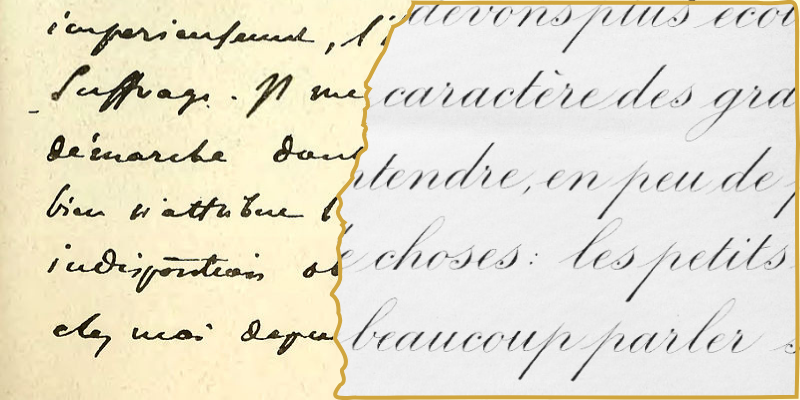 suffrage. Il me
démarche dont
bien m'attribue l
indisposition
chez moi depu
devons plus écou
caractère des gra
ntendre, en peu de
choses: les petits
beaucoup parler